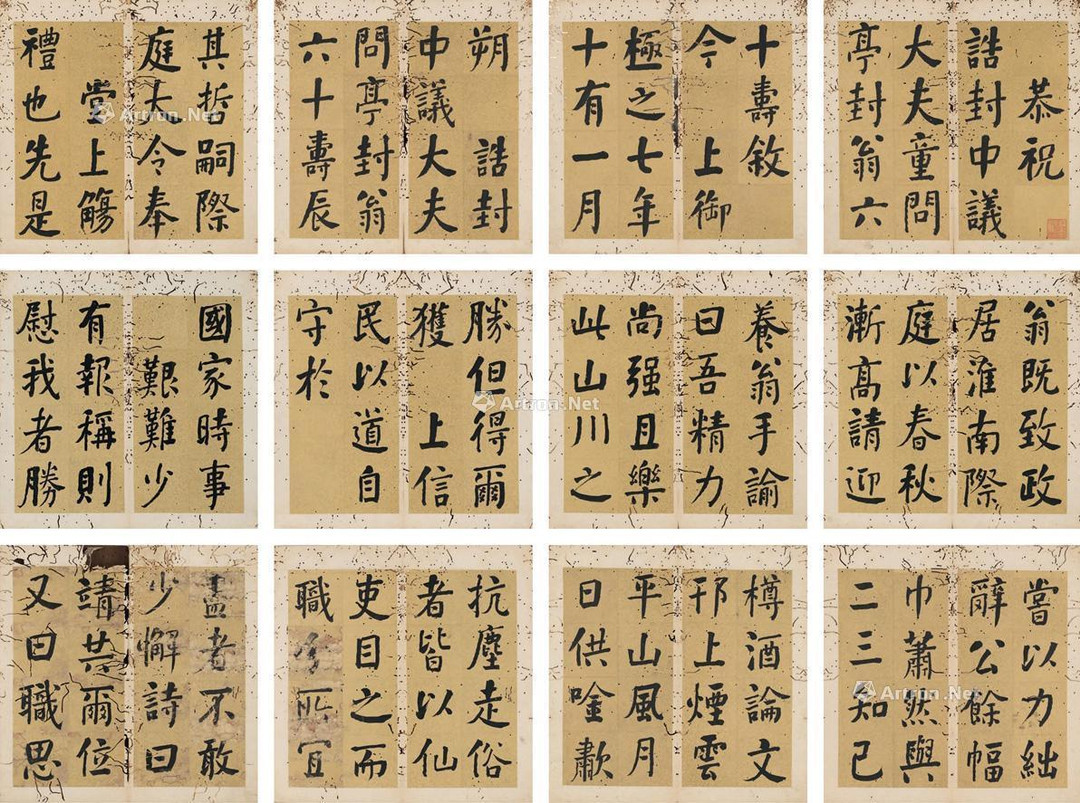 恭祝
誥封中議
大夫童問
亭封翁六
十壽敘
今 上御
極之七年
十有一月
朔 誥封
中議大夫
問亭封翁
六十壽辰
其哲嗣際
庭大令奉
堂上觴
禮也先是
翁既致政
居淮南際
庭以春秋
漸髙請迎
養翁手諭
曰吾精力
尚强且樂
此山川之
勝但得爾
獲 上信
民以道自
守於
國家時事
艱難少
有報稱則
慰我者勝
嘗以力絀
辭公餘幅
巾蕭然與
二三知己
樽酒論文
邗上煙雲
平山風月
日供唫歗
抗塵走俗
者皆以仙
吏目之而
職分所宜
盡者不敢
少懈詩曰
靖共爾位
又曰職思
Artron.Net
Artron.Net
Artron.Net